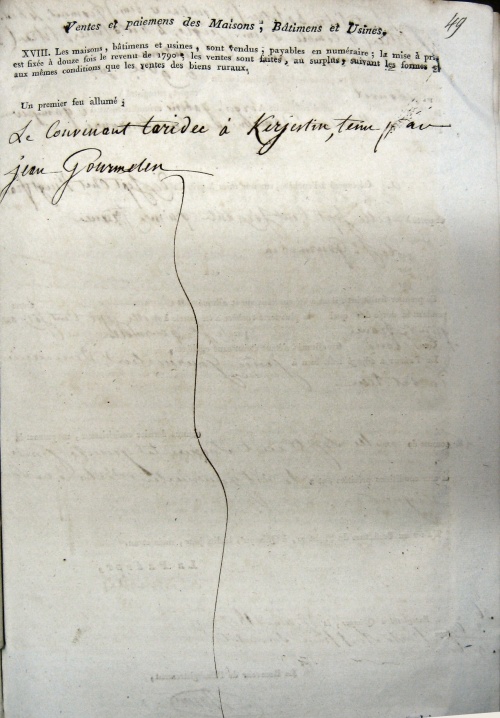 49
Ventes et paiemens des Maisons, Bâtimens et Usines.
XVIII. Les maisons, bâtimens et usines, sont vendus, payables en numéraire ; la mise à prix
est fixée à douze fois le revenu de 1790 ; les ventes sont faites, au surplus, suivant les formes et
aux mêmes conditions que les ventes des biens ruraux.
Un premier feu allumé ;
Le Convenant taridec à Kerjestin, tenu par
jean Gourmelen